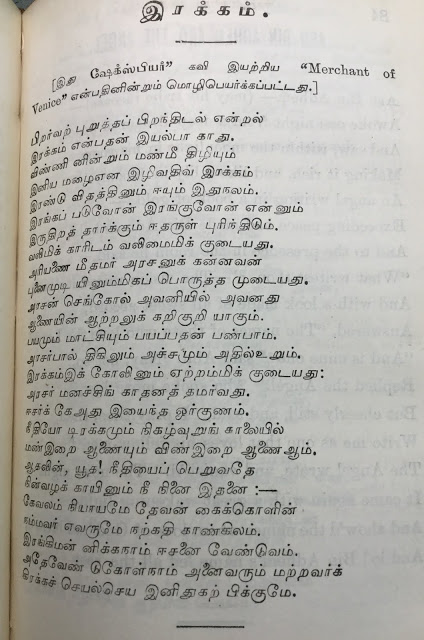 இரக்கம்.
[இது ஷேக்ஸ்பியர்” கவி இயற்றிய “Merchant of
Venice” என்பதினின்றும் மொழிபெயர்க்கப்பட்டது.]
பிறர்வற் புறுத்தப் பிறந்திடல் என்றல்
இரக்கம் என்பதன் இயல்பா காது.
விண்ணி னின்றும் மண்மீ திழியும்
இனிய மழைஎன இழிவதிவ் இரக்கம்
இரண்டு விதத்தினும் ஈயும் இதுநலம்.
இரங்கப் படுவோன் இரங்குவோன் என்னும்
இருதிறத் தார்க்கும் ஈதருள் புரிந்திடும்.
வலிமிக் காரிடம் வலிமைமிக் குடையது.
அரியணை மீதமர் அரசனுக் கன்னவன்
புனைமுடி யினும்மிகப் பொருத்த முடையது.
அரசன் செங்கோல் அவனியில் அவனது
ஆணையின் ஆற்றலுக் கறிகுறி யாகும்.
பயமும் மாட்சியும் பயப்பதன் பண்பாம்.
அரசர்பால் திகிலும் அச்சமும் அதில்உறும்.
இரக்கம்இக் கோலினும் ஏற்றம்மிக் குடையது:
அரசர் மனச்சிங் காதனத் தமர்வது.
ஈசர்க் கேஅது இயைந்த ஓர்குணம்.
நீதியோ டிரக்கமும் நிகழ்வுறுங் காலையில்
மண்இறை ஆணையும் விண்இறை ஆணைஆம்.
ஆதலின், யூத! நீதியைப் பெறுவதே
நின்வழக் காயினும் நீ நினை இதனை :—
கேவலம் நியாயமே தேவன் கைக்கொளின்
நம்மவர் எவருமே நற்கதி காண்கிலம்.
இரங்கிமன் னிக்கநாம் ஈசனை வேண்டுவம்.
அதேவேண் டுகோள்நாம் அனைவரும் மற்றவர்க்
கிரக்கச் செயல்செய இனிதுகற் பிக்குமே.